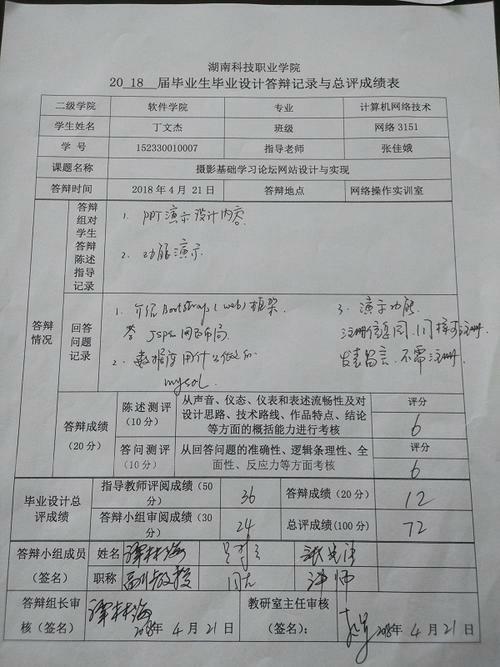 湖南科技职业学院
20 18 届毕业生毕业设计答辩记录与总评成绩表
二级学院 软件学院 专业 计算机网络技术
学生姓名 丁文杰 班级 网络3151
学 号 152330010007 指导老师 张佳娥
课题名称 摄影基础学习论坛网站设计与实现
答辩时间 2018 年 4 月 21 日 答辩地点 网络操作实训室
答辩情况
答辩组对学生答辩陈述指导记录
1. PPT演示设计内容
2. 功能演示
回答问题记录
1. 介绍Bootstrap(web)框架
答 JSP 网页布局
2. 数据库用什么做的
mysql
3. 演示功能
发表留言,不需注册
答辩成绩(20 分)
陈述测评(10 分)
从声音、仪态、仪表和表述流畅性及对设计思路、技术路线、作品特点、结论等方面的概括能力进行考核
评分
6
答问测评(10 分)
从回答问题的准确性、逻辑条理性、全面性、反应力等方面考核
评分
6
毕业设计总评成绩
指导教师评阅成绩(50分) 36 答辩成绩(20 分) 12
答辩小组审阅成绩(30分) 24 总评成绩(100 分) 72
答辩小组成员(签名)
姓名 谭林海
职称 副教授 讲师
答辩组长审核(签名) 谭林海
2018年 4 月 21 日
教研室主任审核(签名):
2018年 4 月 21 日